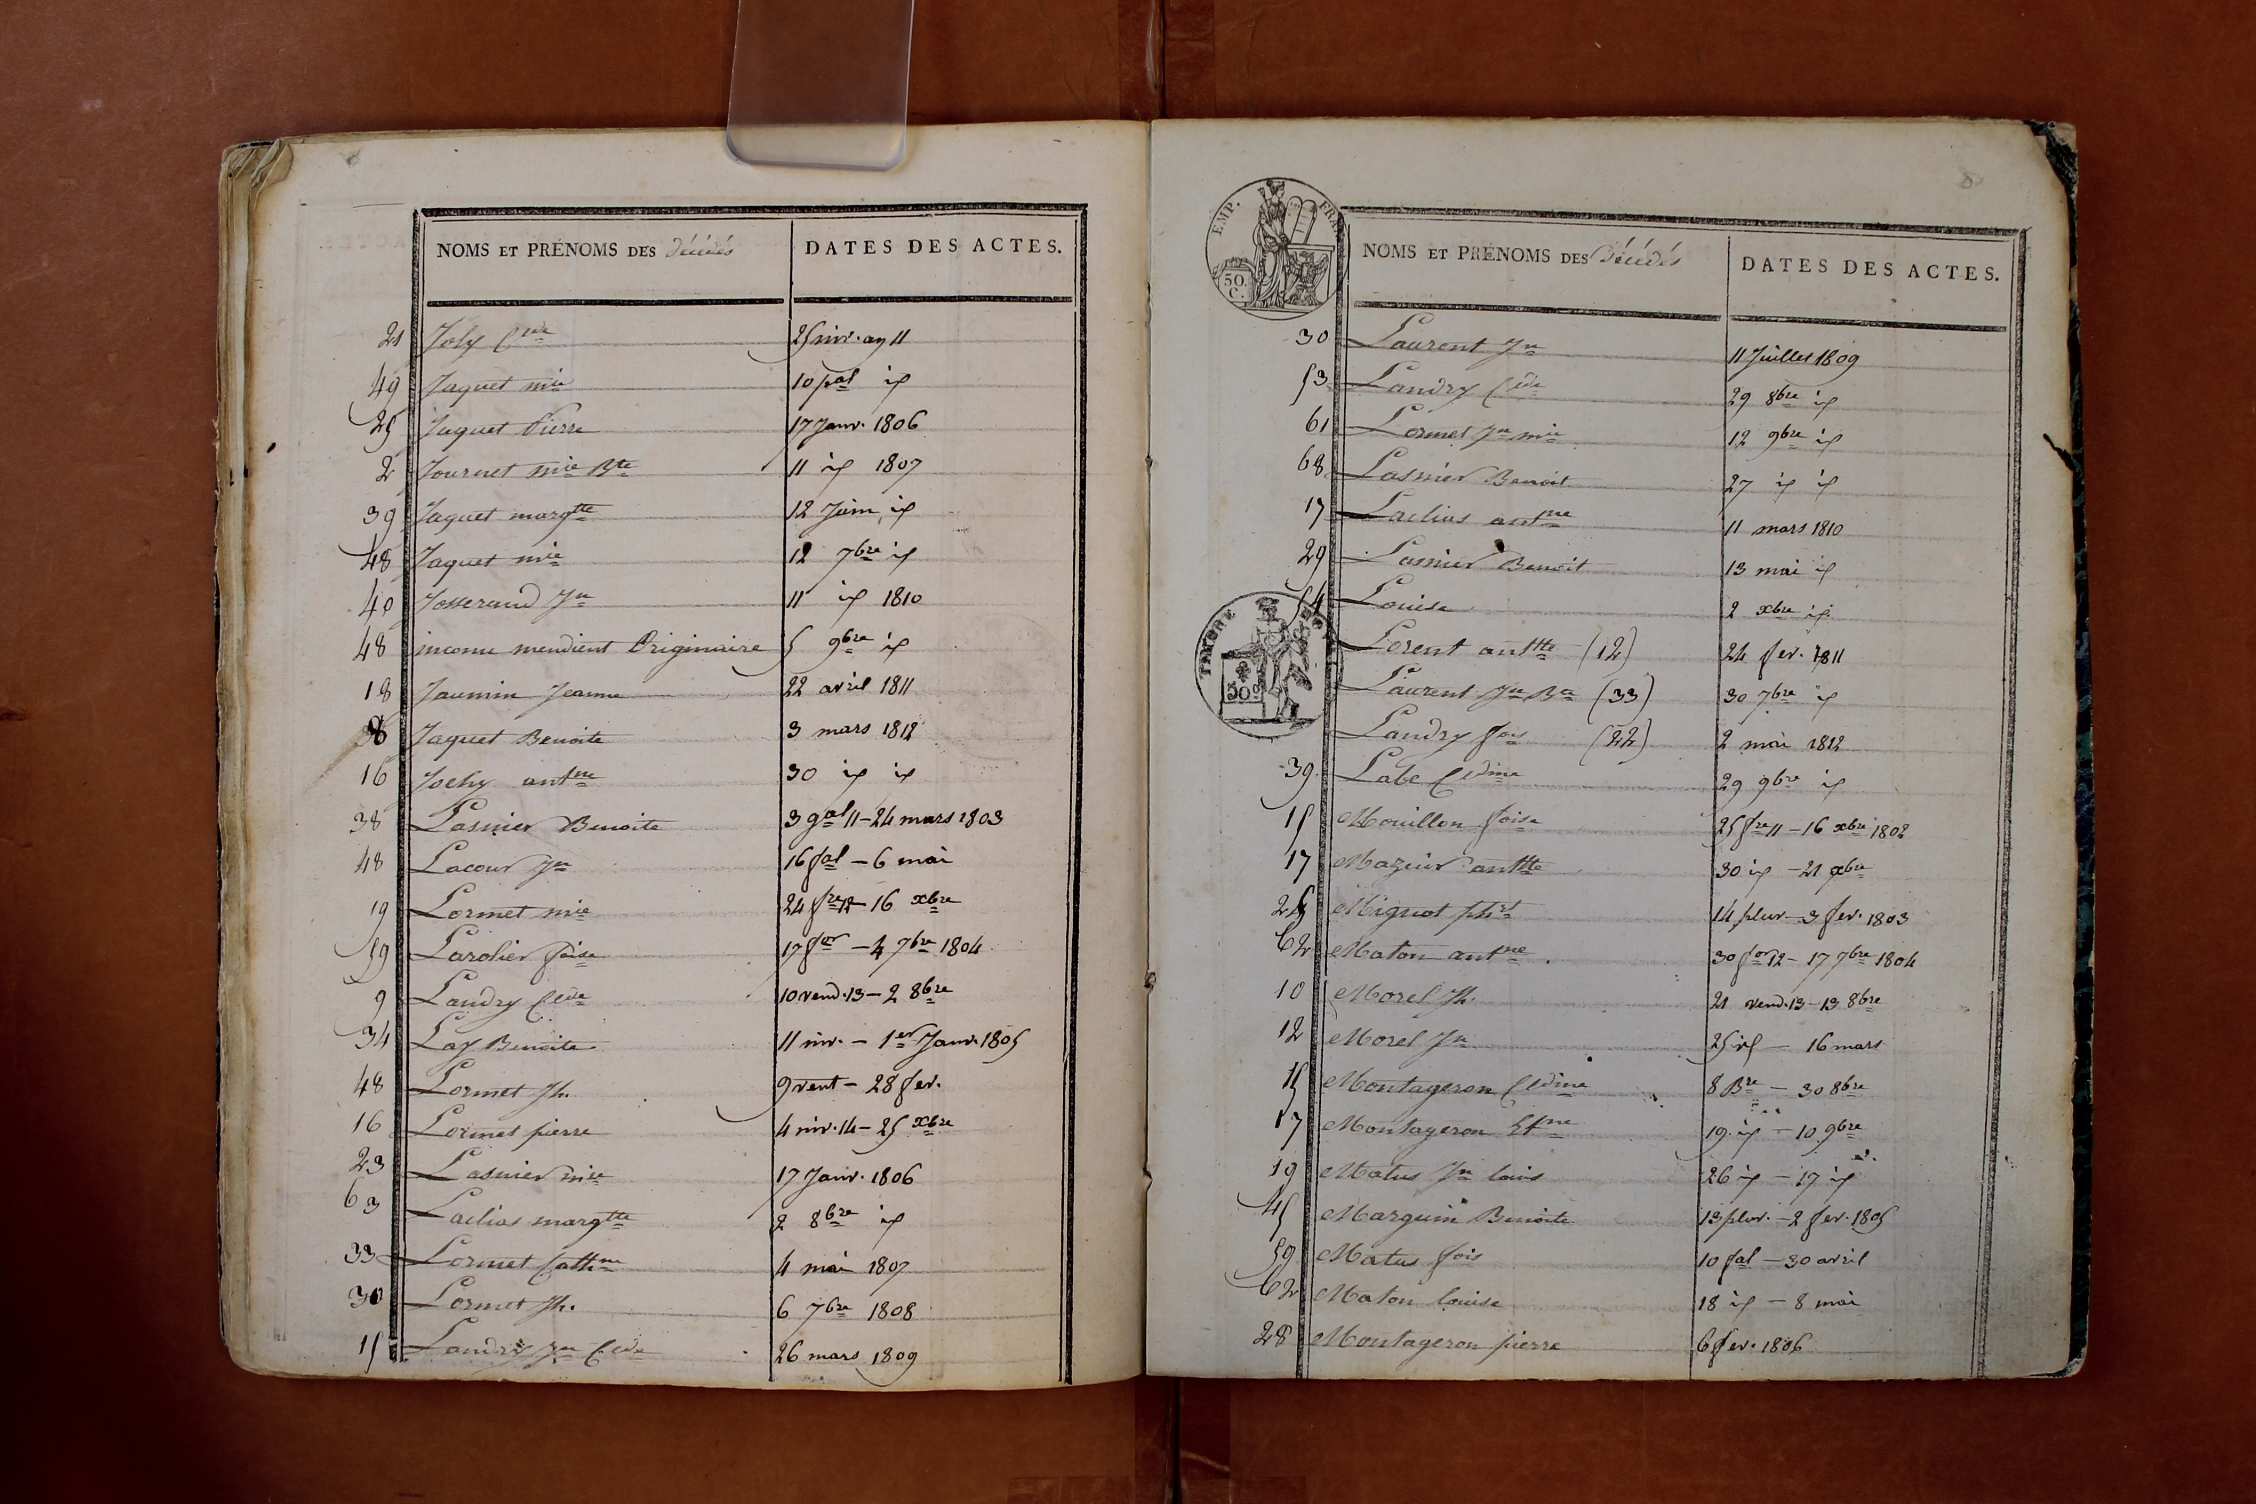 NOMS ET PRÉNOMS DES Décédés DATES DES ACTES.
21 Joly 25 niv. an 11
49 Jaquet mie 10 pal id
25 Jaquet Pierre 17 Janv. 1806
2 Journet mie Bte 11 id 1807
39 Jaquet margtte 12 Juin id
48 Jaquet mie 12 7bre id
40 Josserand Jn 11 id 1810
48 inconu mendient Originaire 5 9bre id
18 Jaumin Jeanne 22 avril 1811
8 Jaquet Benoite 3 mars 1812
16 antne 30 id id
38 Lasnier Benoite 3 gal 11 - 24 mars 1803
48 Lacour Jn 16 fal - 6 mai
19 Lormet mie 24 fre 12 - 16 xbre
59 Larolier foise 17 for - 4 7bre 1804
9 Landry Clde 10 vend. 13 - 2 8bre
34 Lay Benoite 11 niv. - 1er Janv. 1805
48 Lormet Jh. 9 vent - 28 fev.
16 Lormet pierre 4 niv. 14 - 25 xbre
23 Lasnier mie 17 Janv. 1806
63 Laclias margtte 2 8bre id
33 Lormet Cathne 4 mai 1807
30 Lormet Jh. 6 7bre 1808
15 Landry Jn Clde 26 mars 1809
EMP. FRAN
50. C.
NOMS ET PRÉNOMS DES Décédés DATES DES ACTES.
30 Laurent Jn 11 Juillet 1809
53 Landry Clde 29 8bre id
61 Lormet Jn mie 12 9bre id
68 Lasnier Benoit 27 id id
17 Laclias antne 11 mars 1810
29 Lasnier Benoit 13 mai id
54 Louise 2 xbre id
TIMBRE
50c
Lorent anttte (12) 24 fev. 1811
Laurent Jn Bte (33) 30 7bre id
Landry fois (22) 2 mai 1812
39 Labe Cldine 29 9bre id
15 Mouillon foise 25 fre 11 - 16 xbre 1802
17 Mazuir anttte 30 id - 21 xbre
25 Mignot phrt 14 pluv - 3 fev. 1803
62 Maton antne 30 for 12 - 17 7bre 1804
10 Morel Jh. 21 vend. 13 - 13 8bre
12 Morel Jn 25 id - 16 mars
15 Montageron Cldine 8 Bre - 30 8bre
17 Montageron Etne 19 id - 10 9bre
19 Matus Jn louis 26 id - 17 id
45 Marguin Benoite 13 pluv. - 2 fev. 1805
59 Matus fois 10 fal - 30 avril
62 Maton louise 18 id - 8 mai
28 Montageron pierre 6 fev. 1806